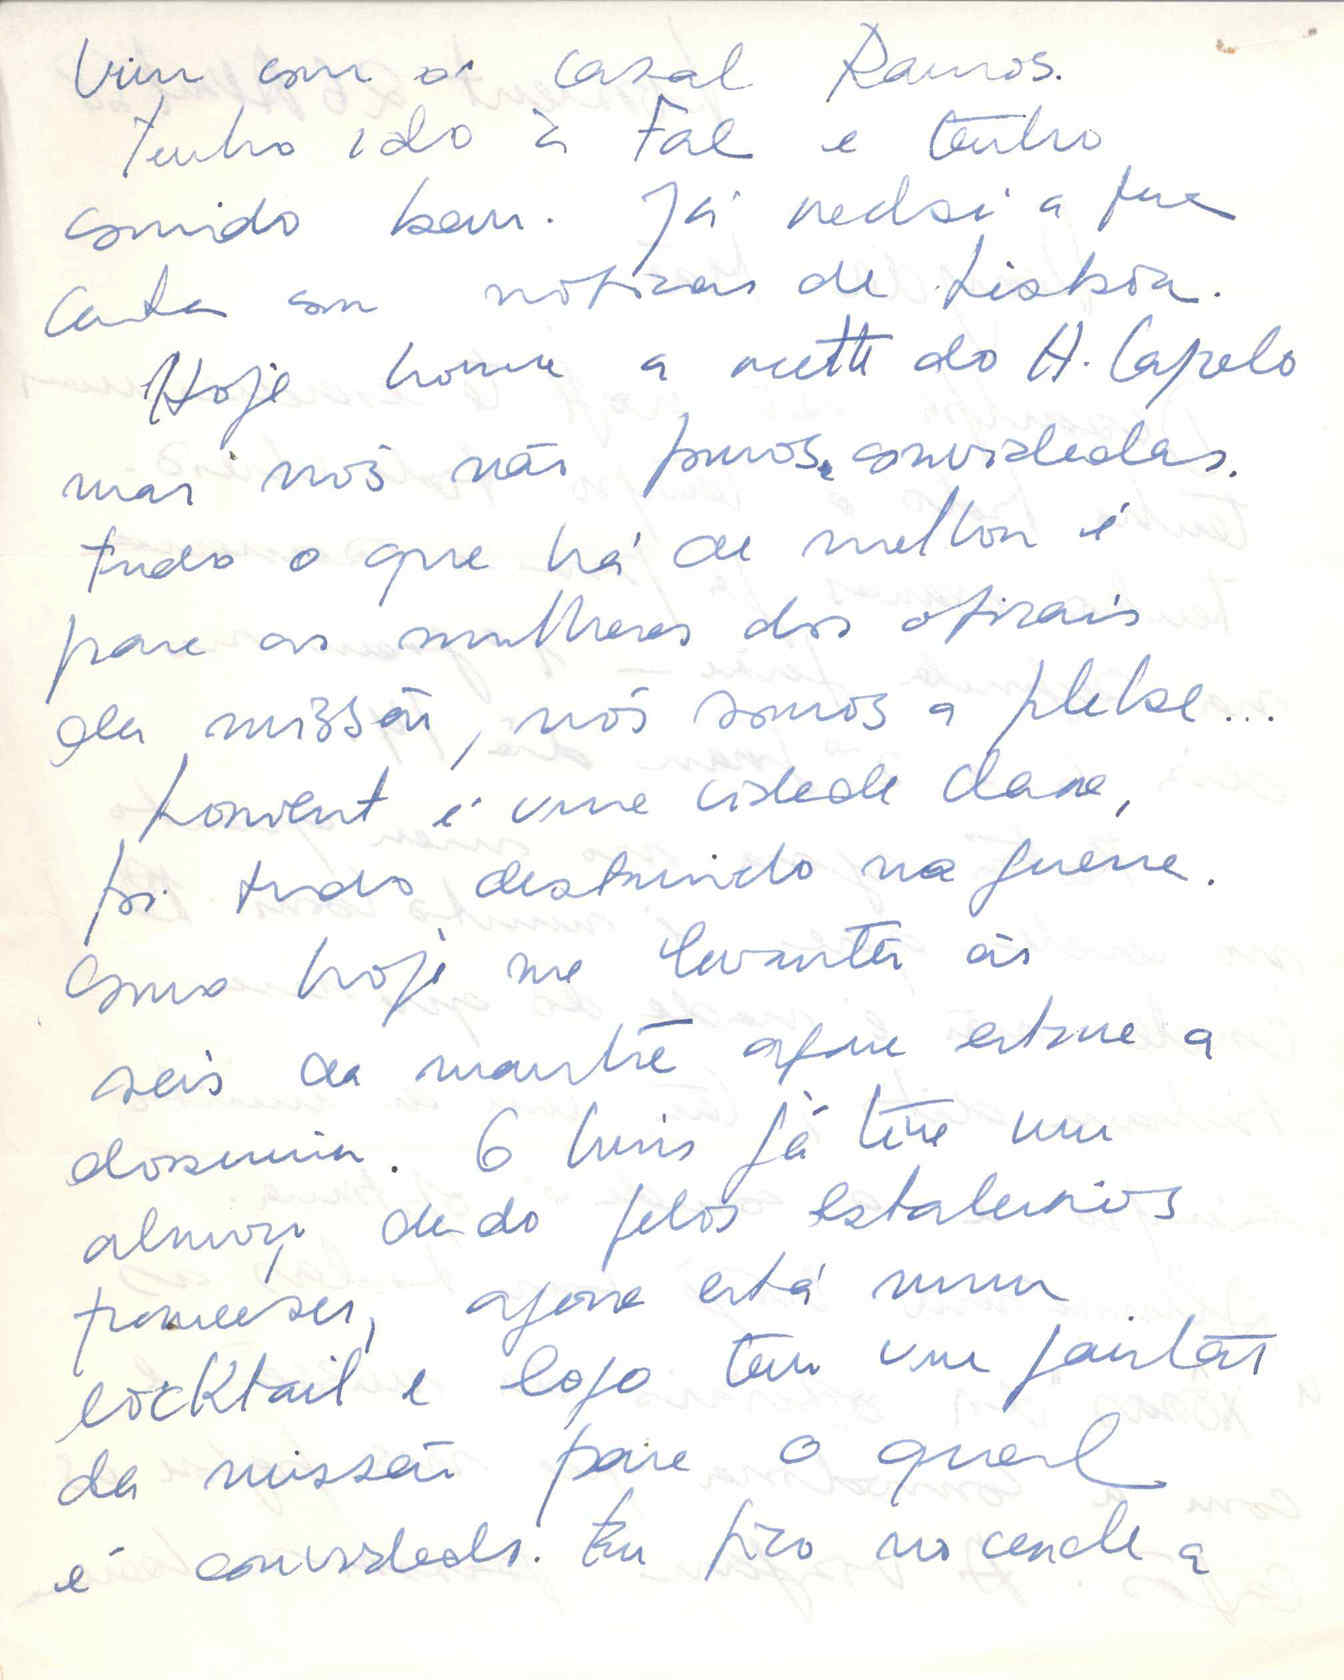 Vim com o casal Ramos.
Tenho ido à Fal e tenho
comido bem. Já recebi a sua
carta com notícias de Lisboa.
Hoje houve a visita do H. Capelo
mas nós não fomos convidadas.
tudo o que há de melhor é
para as mulheres dos oficiais
da missão, nós somos a plebe...
Lorient é uma cidade clara,
foi tudo destruído na guerra.
Como hoje me levantei às
seis da manhã agora estava a
dormir. O Luis já teve um
almoço dado pelos estaleiros
franceses, agora está num
cocktail e logo tem um jantar
da missão para o qual
é convidado. Eu fico no cende a